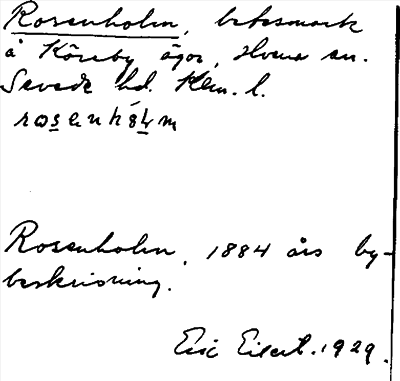 Rosenholm, betesmark
å Köreby ägor, Hvena sn.
Sevede hd. Klm. l.
rosenhålm
Rosenholm, 1884 års by-
beskrivning.
Eric Eilert. 1929.